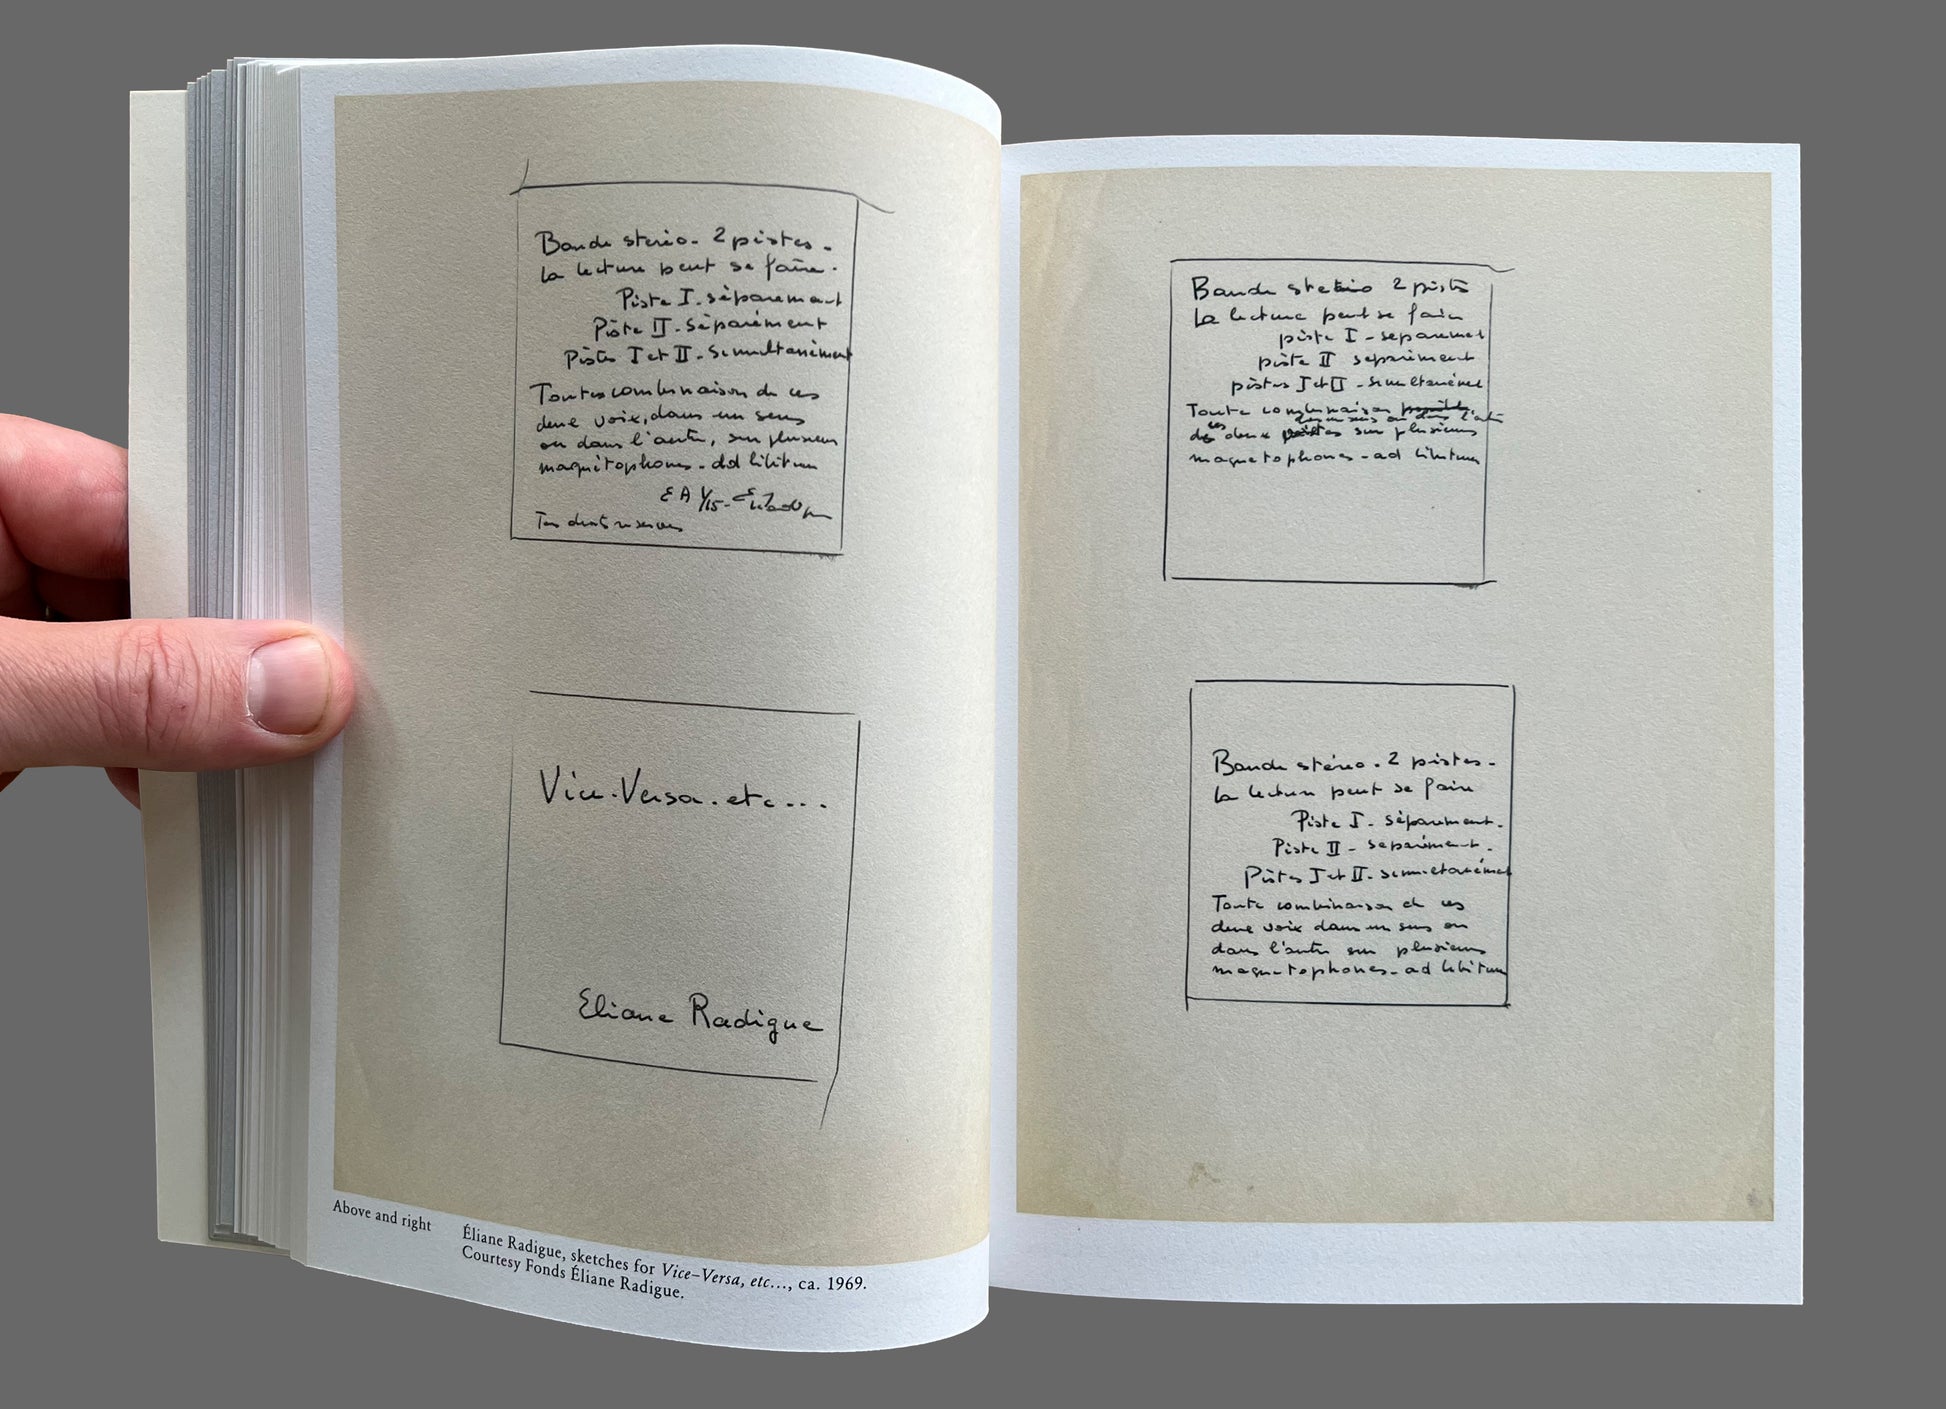 Bande stereo - 2 pistes -
La lecture peut se faire -
Piste I - séparement
Piste II - séparément
Pistes I et II - simultanément
Toutes combinaison de ces
deux voix, dans un sens
ou dans l'autre, sur plusieurs
magnétophones - ad libitum
EA 1/15 -
Tous droits reserves
Vice - Versa - etc ...
Eliane Radigue
Above and right
Éliane Radigue, sketches for Vice–Versa, etc…, ca. 1969.
Courtesy Fonds Éliane Radigue.
Bande stereo 2 pistes
La lecture peut se faire
piste I - separement
piste II separément
pistes I et II - simultanément
Toute combinaison
dans un sens ou dans l'autre
de ces deux sur plusieurs
magnetophones - ad libitum
Bande stéreo - 2 pistes -
La lecture peut se faire
Piste I - séparement -
Piste II - separément -
Pistes I et II - simultanément
Toute combinaison de ces
deux voix dans un sens ou
dans l'autre sur plusieurs
magnetophones - ad libitum